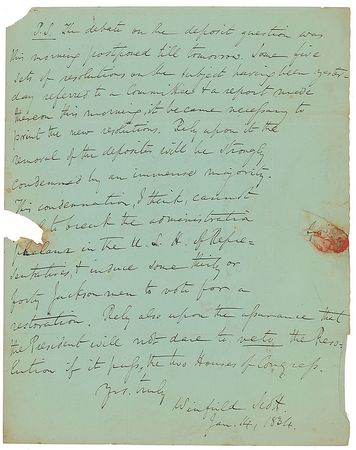 P.S. The debate on the deposit question was
this morning postponed till tomorrow. Some five
sets of resolutions on the subject having been yester-
day referred to a Committee & a report made
thereon this morning, it became necessary to
print the new resolutions. Rely upon it the
removal of the deposites will be strongly
condemned by an immense majority.
This condemnation, I think, cannot
to break the administration
phalanx in the U. S. H. of Repre-
sentatives, & induce some thirty or
forty Jackson men to vote for a
restoration. Rely also upon the assurance that
the President will not dare to veto the Reso-
lution if it pass the two Houses of Congress.
Yrs. truly
Winfield Scott.
Jan. 14, 1834.